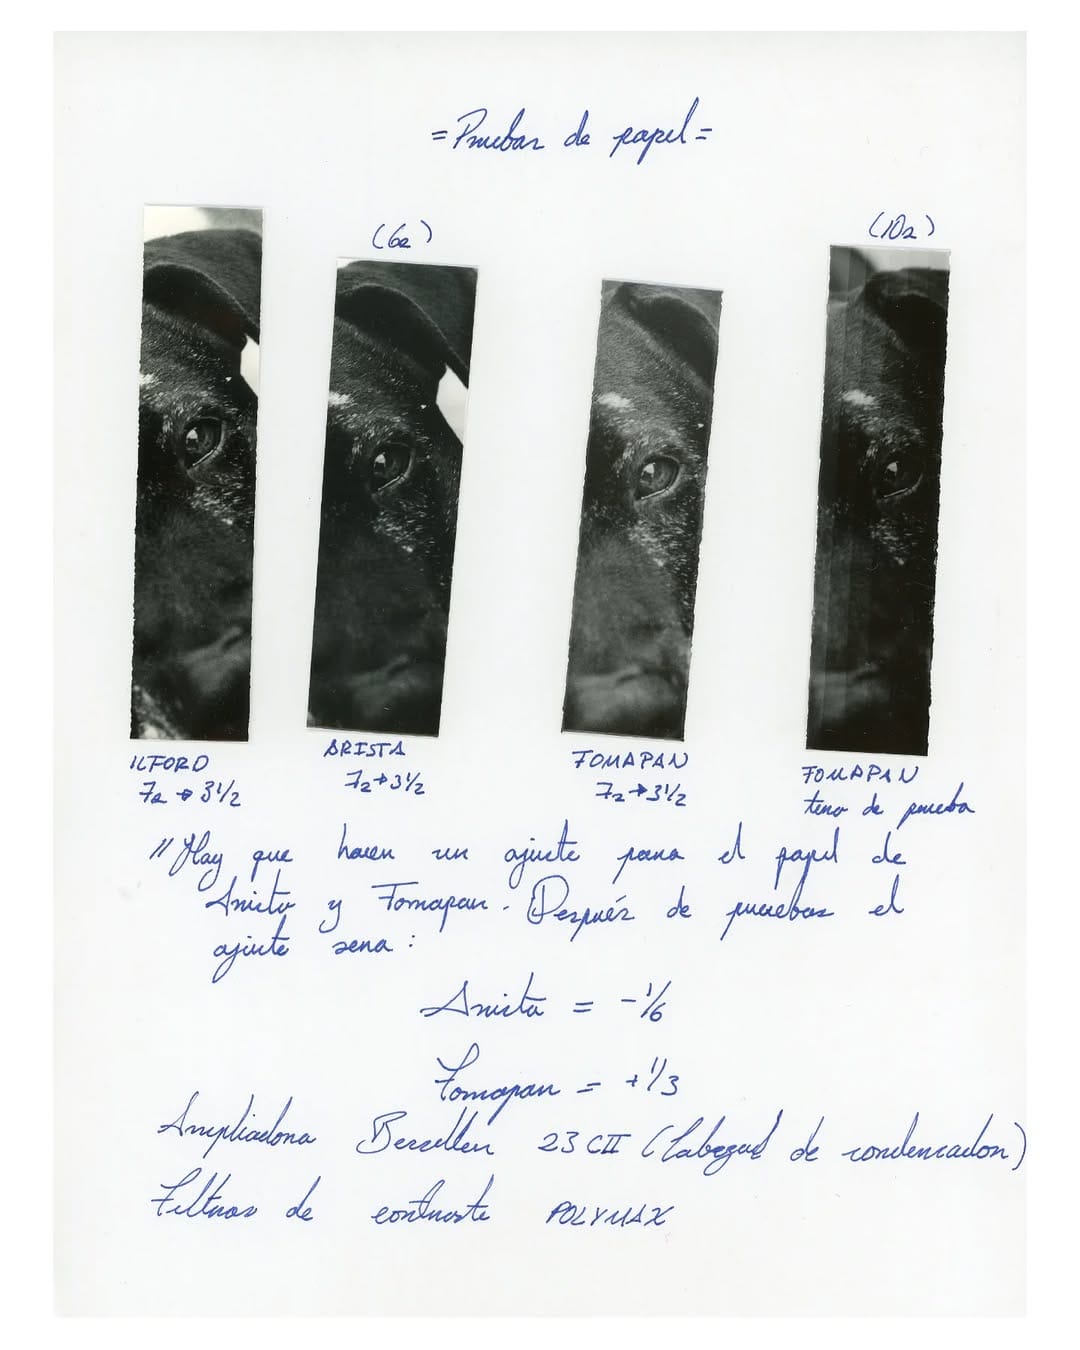 =Pruebas de papel=
(6s)
(10s)
ILFORD
7s → 3 1/2
ARISTA
7s → 3 1/2
FOMAPAN
7s → 3 1/2
FOMAPAN
tira de prueba
"Hay que hacer un ajuste para el papel de
Arista y Fomapan. Después de pruebas el
ajuste sería:
Arista = -1/6
Fomapan = +1/3
Ampliadora Beseller 23 CII (Cabezal de condensador)
Filtros de contraste POLYMAX